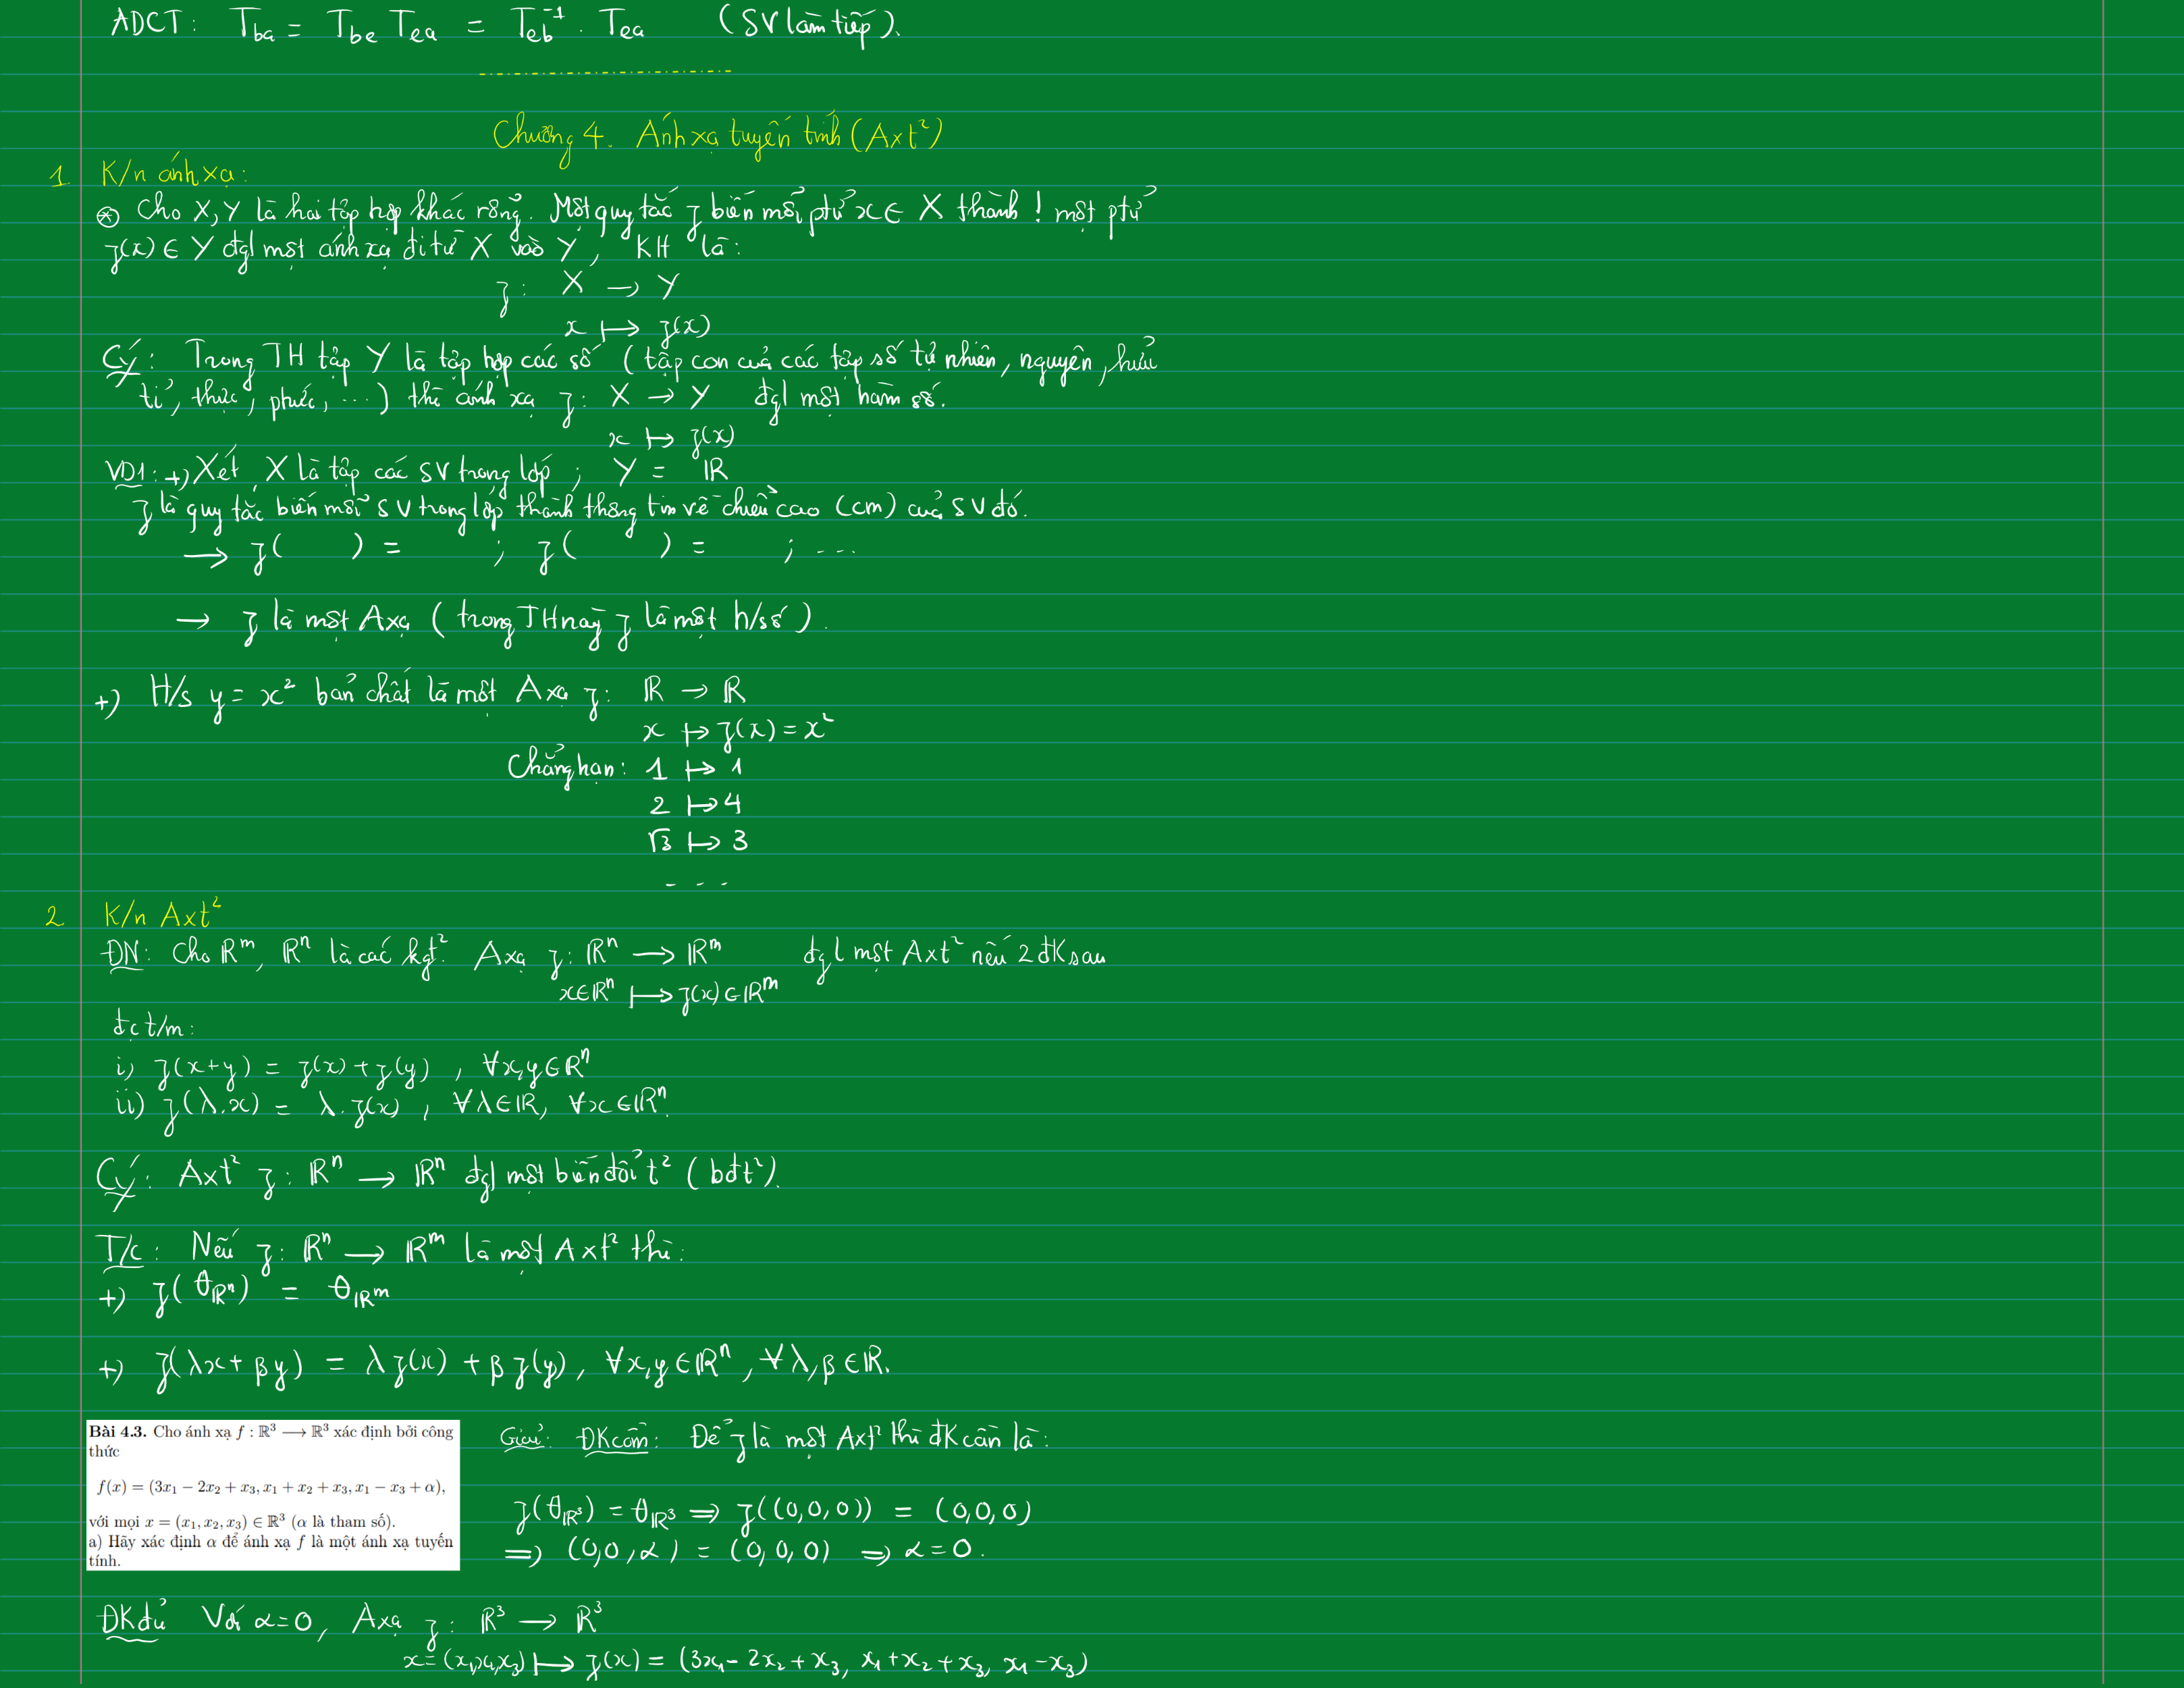 ADCT: T_ba = T_be T_ea = T_eb^-1 . T_ea (SV làm tiếp).
Chương 4. Ánh xạ tuyến tính (Axt²)
1. K/n ánh xạ:
⊛ Cho X, Y là hai tập hợp khác rỗng. Một quy tắc f biến mỗi ptử x ∈ X thành ! một ptử
f(x) ∈ Y đgl một ánh xạ đi từ X vào Y, KH là:
f: X → Y
x ↦ f(x)
Cý: Trong TH tập Y là tập hợp các số (tập con của các tập số tự nhiên, nguyên, hữu
tỉ, thực, phức, ...) thì ánh xạ f: X → Y đgl một hàm số.
x ↦ f(x)
VD1: +) Xét X là tập các SV trong lớp ; Y = ℝ
f là quy tắc biến mỗi SV trong lớp thành thông tin về chiều cao (cm) của SV đó.
→ f( ) = ; f( ) = ; ...
→ f là một Axạ (trong TH này f là một h/số).
+) H/s y = x² bản chất là một Axạ f: ℝ → ℝ
x ↦ f(x) = x²
Chẳng hạn: 1 ↦ 1
2 ↦ 4
√3 ↦ 3
...
2. K/n Axt²
ĐN: Cho ℝ^m, ℝ^n là các kgt². Axạ f: ℝ^n → ℝ^m đgl một Axt² nếu 2 đK sau
x∈ℝ^n ↦ f(x)∈ℝ^m
đc t/m:
i) f(x+y) = f(x) + f(y) , ∀x,y∈ℝ^n
ii) f(λ.x) = λ.f(x) , ∀λ∈ℝ, ∀x∈ℝ^n.
Cý: Axt² f: ℝ^n → ℝ^n đgl một biến đổi t² (bđt²).
T/c: Nếu f: ℝ^n → ℝ^m là một Axt² thì:
+) f(θ_ℝ^n) = θ_ℝ^m
+) f(λx + βy) = λf(x) + βf(y), ∀x,y∈ℝ^n, ∀λ,β∈ℝ.
Bài 4.3. Cho ánh xạ f : ℝ³ ⟶ ℝ³ xác định bởi công
thức
f(x) = (3x₁ − 2x₂ + x₃, x₁ + x₂ + x₃, x₁ − x₃ + α),
với mọi x = (x₁, x₂, x₃) ∈ ℝ³ (α là tham số).
a) Hãy xác định α để ánh xạ f là một ánh xạ tuyến
tính.
Giải: ĐK cần: Để f là một Axt² thì đK cần là:
f(θ_ℝ³) = θ_ℝ³ ⟹ f((0,0,0)) = (0,0,0)
⟹ (0,0,α) = (0,0,0) ⟹ α = 0.
ĐK đủ Với α=0, Axạ f: ℝ³ → ℝ³
x = (x₁,x₂,x₃) ↦ f(x) = (3x₁ − 2x₂ + x₃, x₁ + x₂ + x₃, x₁ − x₃)